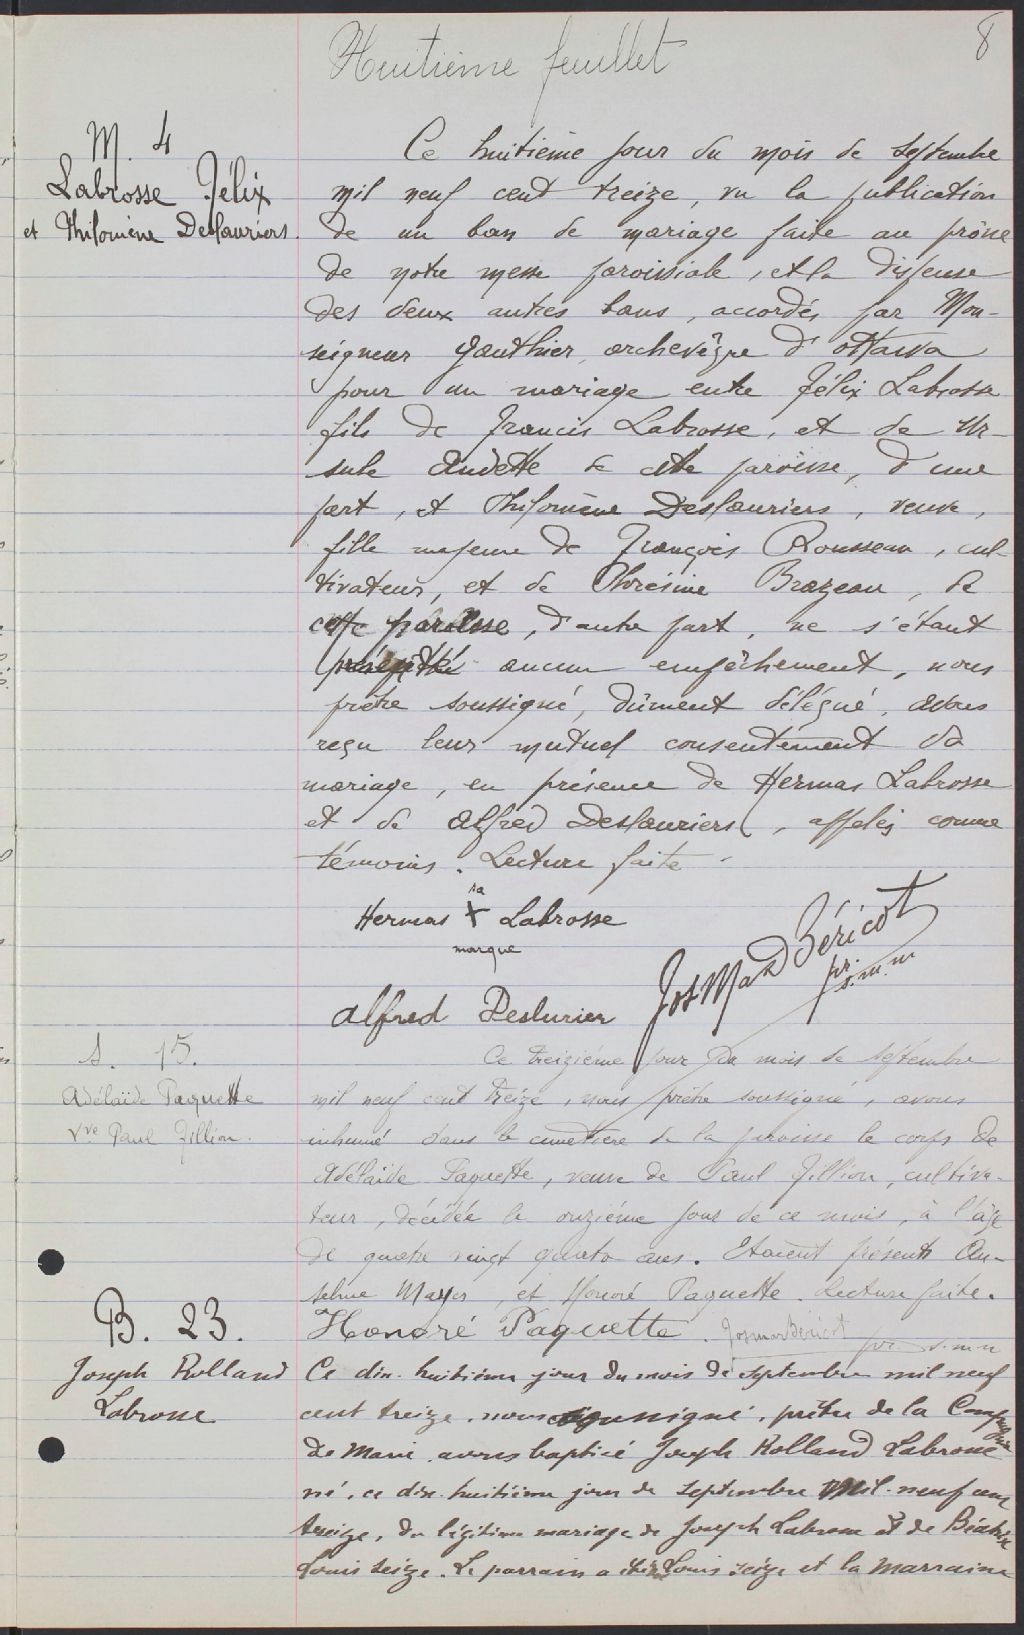 Huitième feuillet
8
M. 4
Labrosse Félix
et Philomène Deslauriers.
Ce huitième jour du mois de Septembre
mil neuf cent treize, vu la publication
de un ban de mariage faite au prône
de notre messe paroissiale, et la dispense
des deux autres bans, accordés par Mon-
seigneur Gauthier archevêque d'Ottawa
pour un mariage entre Félix Labrosse
fils de Francis Labrosse, et de Ur-
sule Audette de cette paroisse, d'une
part, et Philomène Deslauriers, veuve,
fille majeure de François Rousseau, cul-
tivateur, et de Brazeau, de
cette paroisse, d'autre part, ne s'étant
présenté aucun empêchement, nous
prêtre soussigné, dûment délégué, avons
reçu leur mutuel consentement de
mariage, en présence de Hermas Labrosse
et de Alfred Deslauriers, appelés comme
témoins. Lecture faite.
Hermas sa X marque Labrosse
Jos Max Béricot
pr. s.m.m
Alfred Deslurier
S. 15.
Adélaïde Paquette
Vve Paul Fillion.
Ce treizième jour du mois de septembre
mil neuf cent treize, nous prêtre soussigné, avons
inhumé dans le cimetière de la paroisse le corps de
Adélaïde Paquette, veuve de Paul Fillion, cultiva-
teur, décédée le onzième jour de ce mois, à l'âge
de quatre vingt quatre ans. Etaient présents An-
selme Mayer, et Honoré Paquette. Lecture faite.
Honoré Paquette. Jos Max Béricot
pr. s.m.m
B. 23.
Joseph Rolland
Labrosse
Ce dix-huitième jour du mois de septembre mil neuf
cent treize, nous soussigné, prêtre de la Compagnie
de Marie avons baptisé Joseph Rolland Labrosse
né, ce dix-huitième jour de septembre mil-neuf cent
treize, du légitime mariage de Joseph Labrosse et de Béatrix
Louis Seize. Le parrain a été Louis Seize et la marraine